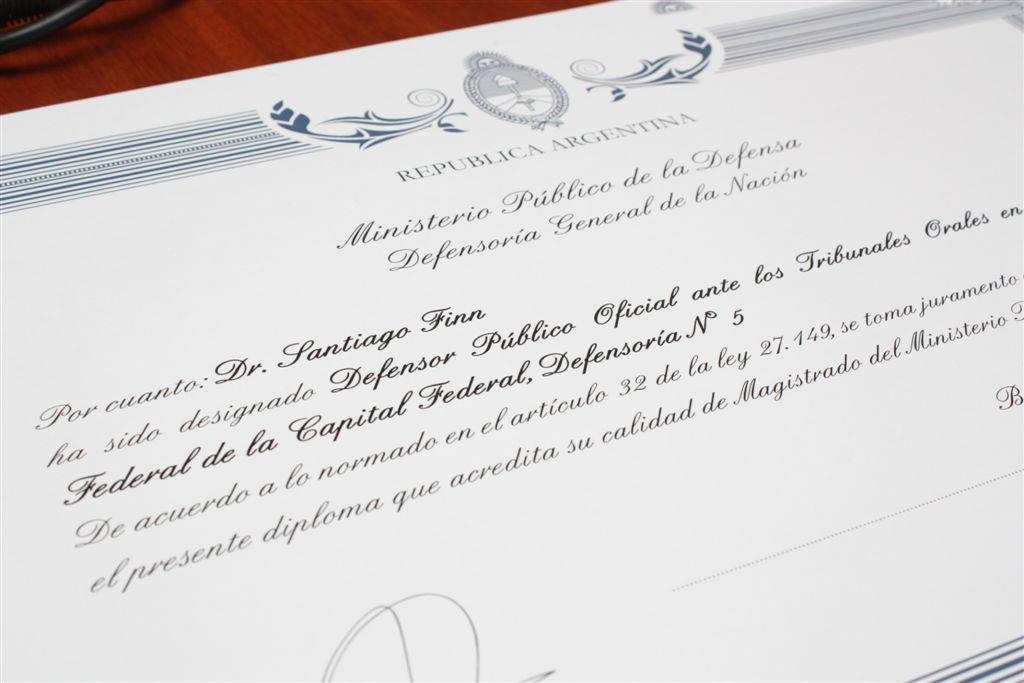 REPUBLICA ARGENTINA
Ministerio Público de la Defensa
Defensoría General de la Nación
Por cuanto: Dr. Santiago Finn
ha sido designado Defensor Público Oficial ante los Tribunales Orales en
Federal de la Capital Federal, Defensoría Nº 5
De acuerdo a lo normado en el artículo 32 de la ley 27.149, se toma juramento
el presente diploma que acredita su calidad de Magistrado del Ministerio
B